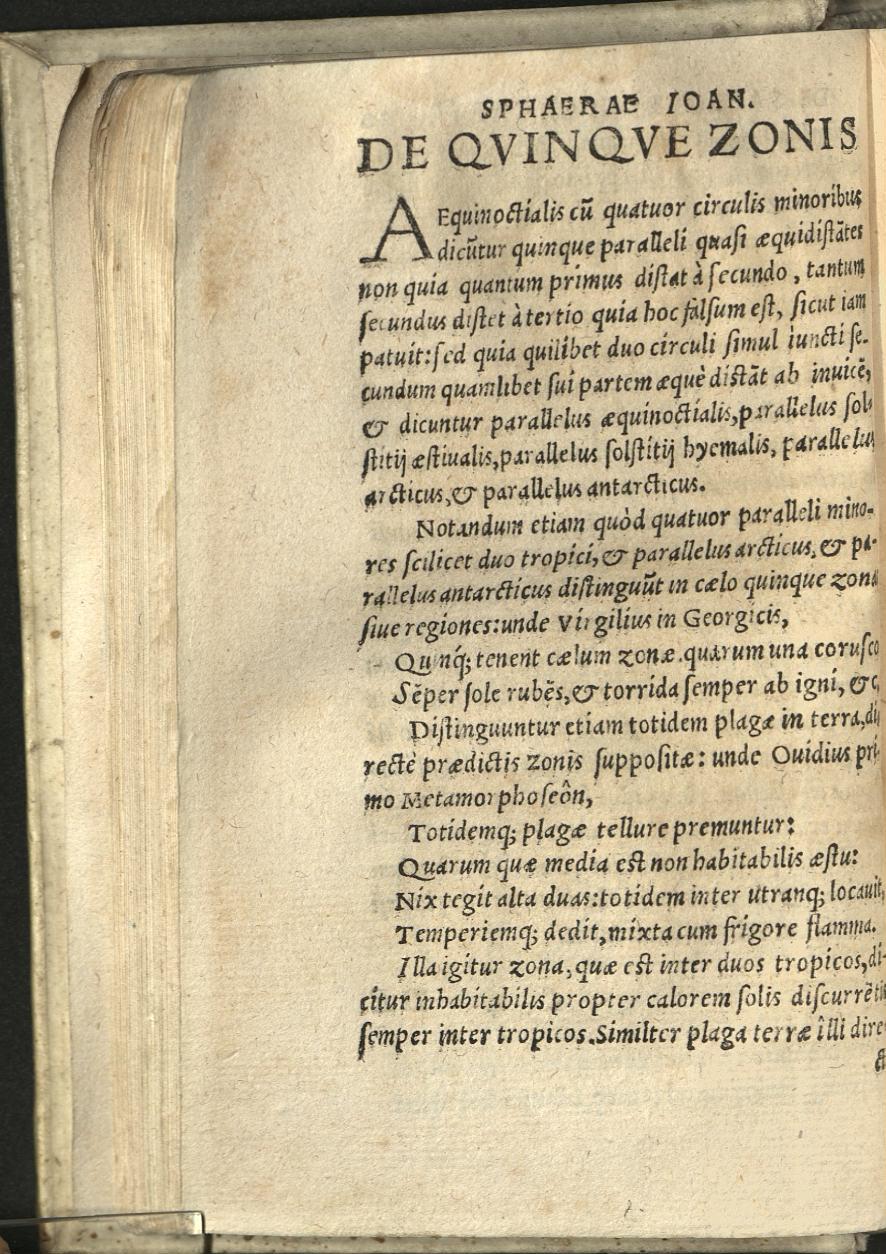 SPHAERAE IOAN.
DE QVINQVE ZONIS
AEquinoctialis cũ quatuor circulis minoribus
dicũtur quinque paralleli quasi æquidistãtes
non quia quantum primus distat à secundo, tantum
secundus distet à tertio quia hoc falsum est, sicut iam
patuit: sed quia quilibet duo circuli simul iuncti se-
cundum quamlibet sui partem æquè distãt ab inuicẽ,
& dicuntur parallelus æquinoctialis, parallelus sol
stitij æstiualis, parallelus solstitij hyemalis, parallelus
arcticus, & parallelus antarcticus.
Notandum etiam quòd quatuor paralleli mino-
res scilicet duo tropici, & parallelus arcticus, & pa-
rallelus antarcticus distinguũt in cælo quinque zonas
siue regiones: unde Virgilius in Georgicis,
Quinq́; tenent cælum zonæ. quarum una corusco
Sẽper sole rubẽs, & torrida semper ab igni, &c
Distinguuntur etiam totidem plagæ in terra, di
rectè prædictis zonis suppositæ: unde Ouidius pri
mo Metamorphoseôn,
Totidemq; plagæ tellure premuntur:
Quarum quæ media est non habitabilis æstu:
Nix tegit alta duas: totidem inter utranq; locauit,
Temperiemq; dedit, mixta cum frigore flamma.
Illa igitur zona, quæ est inter duos tropicos, di-
citur inhabitabilis propter calorem solis discurrẽtis
semper inter tropicos. Similter plaga terræ illi dire